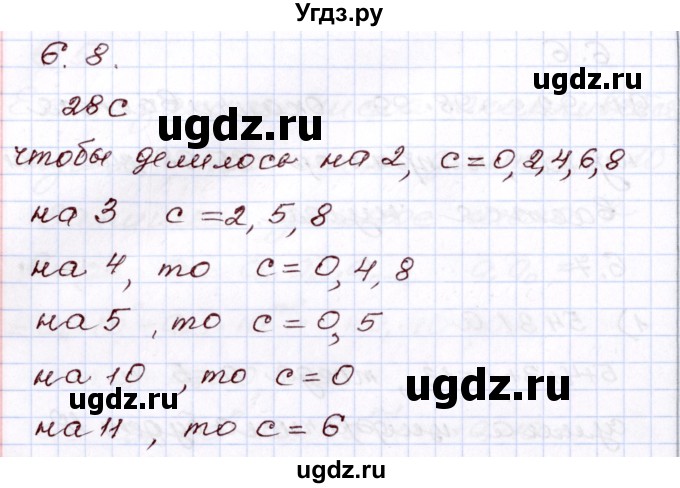 Угдз.ру
6. 8.
28с
ugdz.ru
чтобы делилось на 2, с=0,2,4,6,8
на 3 с=2, 5, 8
на 4, то с=0, 4, 8
на 5, то с=0, 5
на 10, то с=0
ugdz.ru
ugdz.ru
на 11, то с=6
ugdz.ru
ugdz.ru